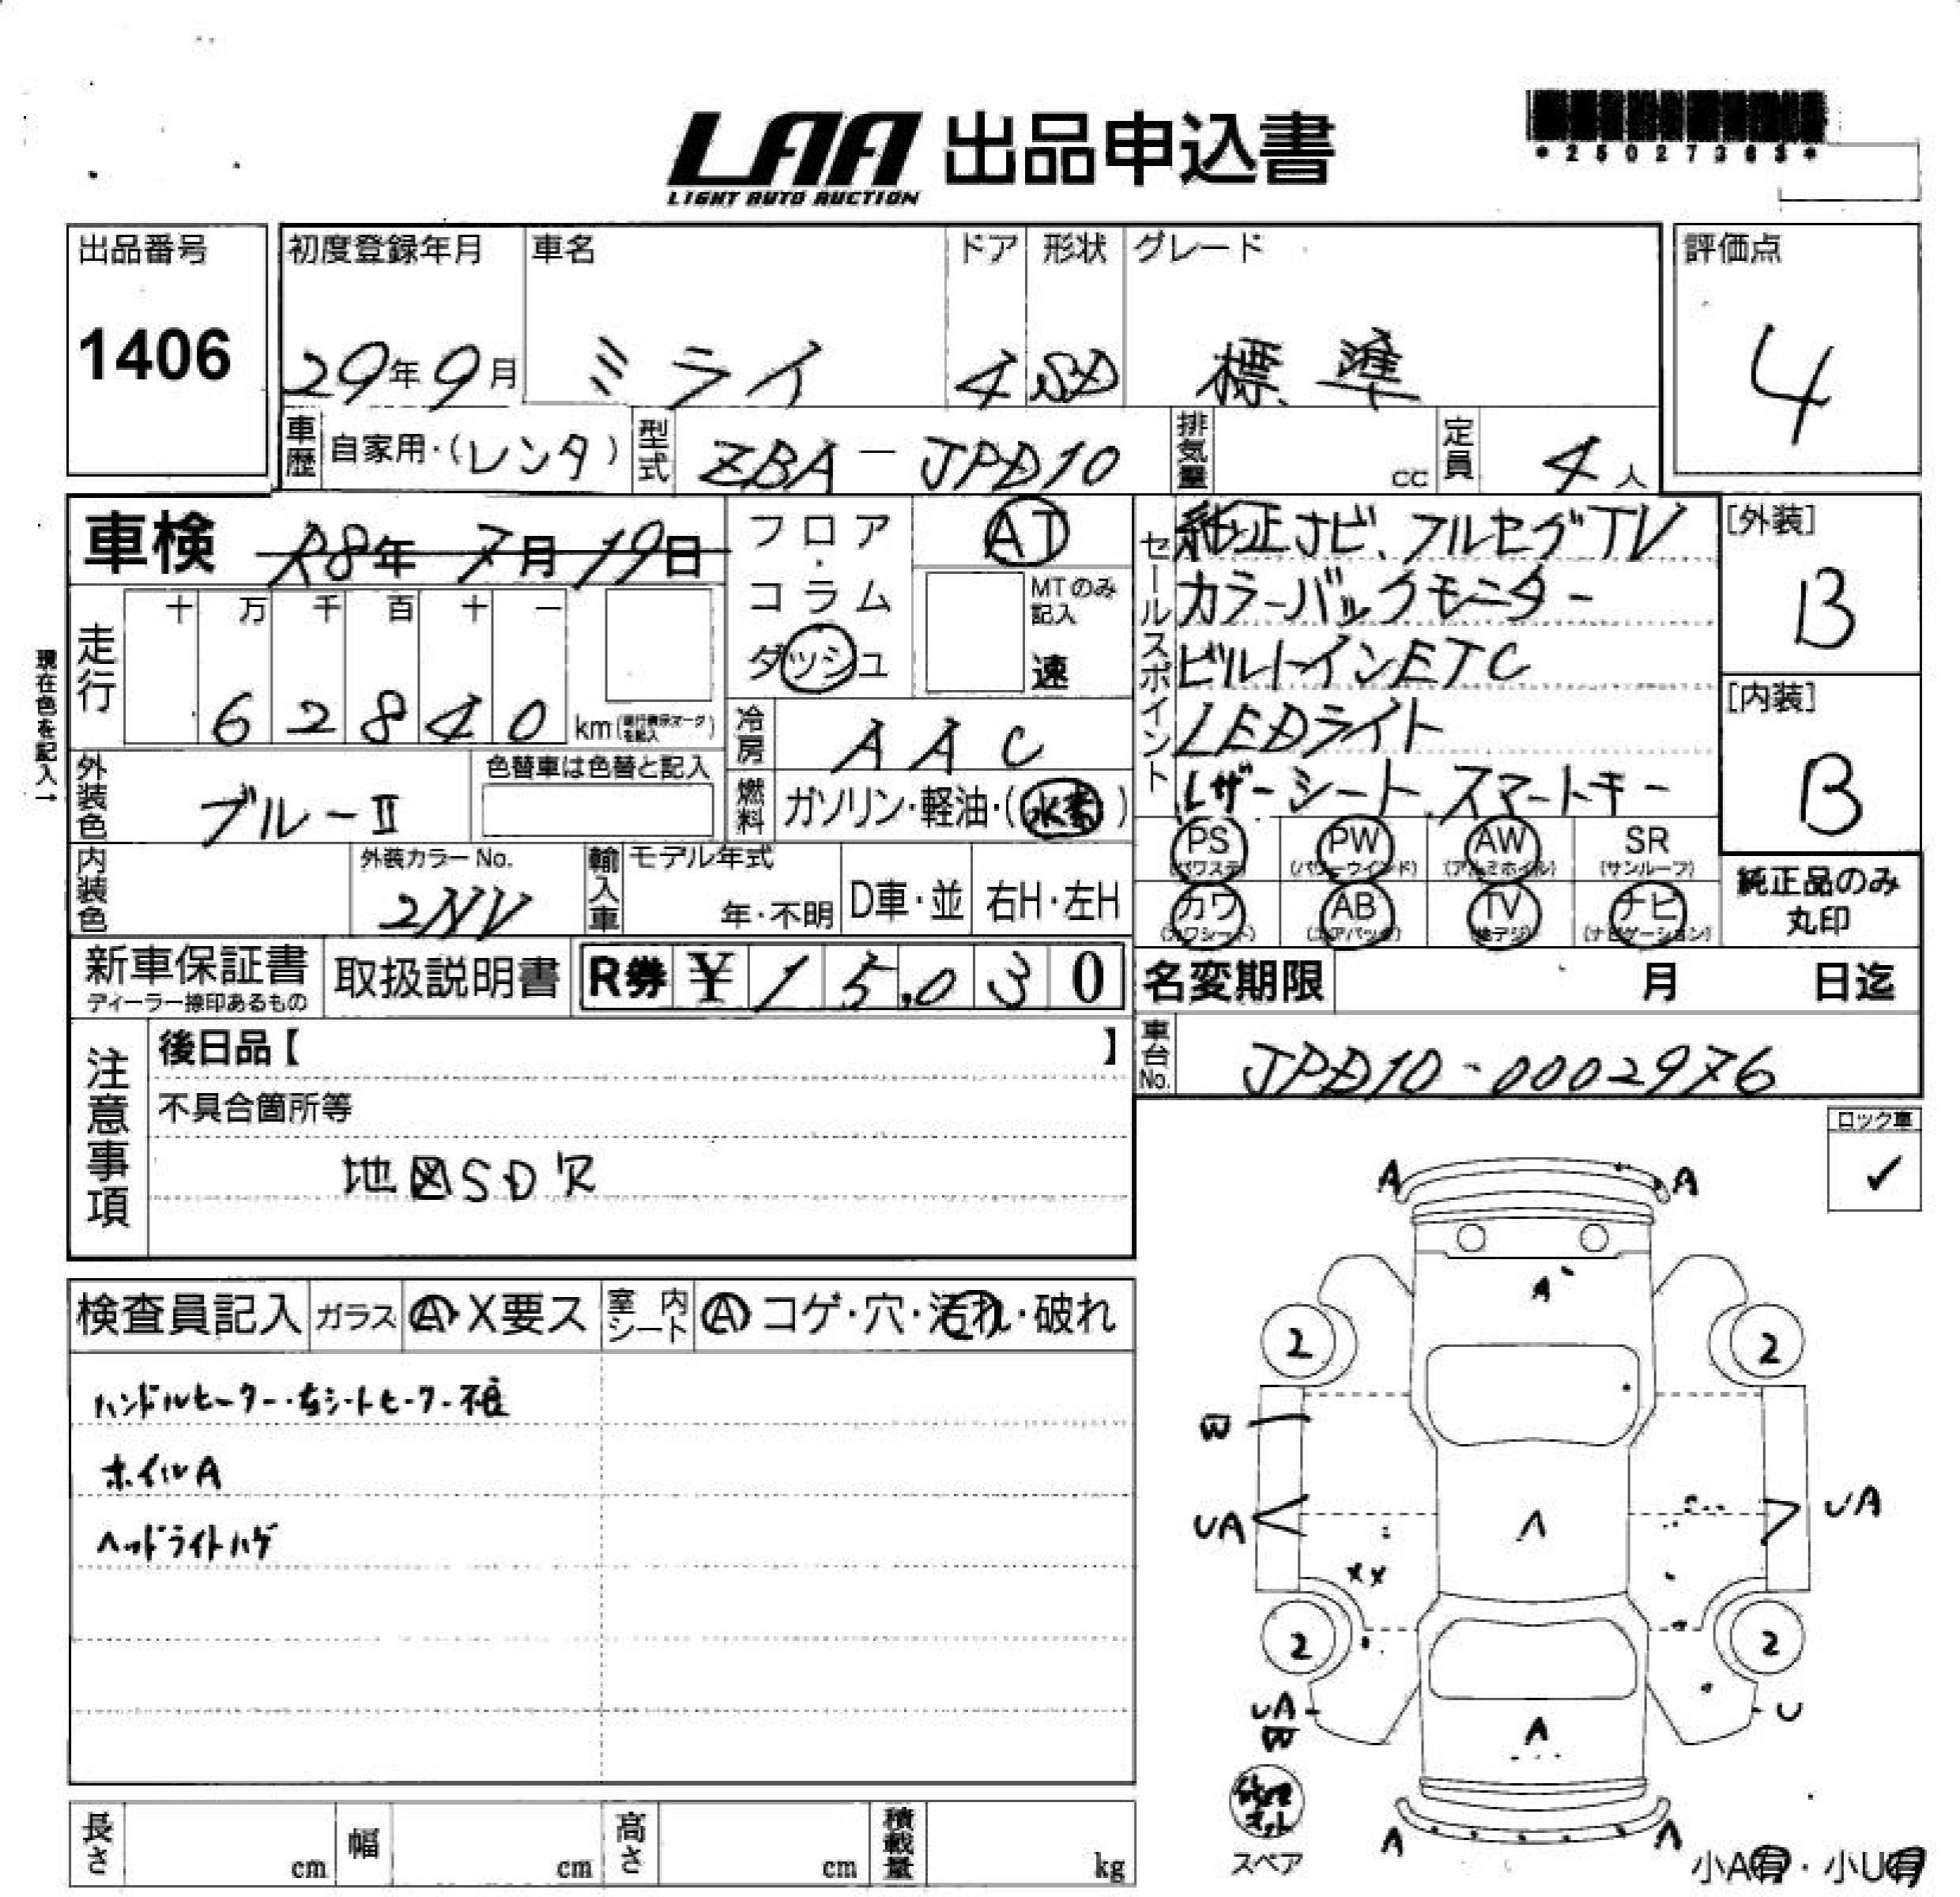 LAA 出品申込書
LIGHT AUTO AUCTION
*25027365*
出品番号
1406
初度登録年月 車名 ドア 形状 グレード
29年9月 ミライ 4 SD 標準
評価点
4
車歴 自家用・(レンタ) 型式 ZBA-JPD10 排気量 cc 定員 4人
車検 R8年7月19日
フロア・コラム ダッシュ
AT
MTのみ記入
速
セールスポイント
純正ナビ、フルセグTV
カラーバックモニター
ビルトインETC
LEDライト
レザーシート、スマートキー
[外装]
B
[内装]
B
現在色を記入→
走行 十 万 千 百 十 一
62840 km
冷房 AAC
外装色 ブルーII 色替車は色替と記入
燃料 ガソリン・軽油・(水素)
内装色 外装カラーNo. 2NV
輸入車 モデル年式 年・不明 D車・並 右H・左H
PS (パワステ) PW (パワーウインド) AW (アルミホイル) SR (サンルーフ)
カワ (カワシート) AB (エアバック) TV (地デジ) ナビ (ナビゲーション)
純正品のみ
丸印
新車保証書 取扱説明書 R券 ¥15,030
ディーラー捺印あるもの
名変期限 月 日迄
車台No. JPD10-0002976
注意事項
後日品【 】
不具合箇所等
地図SD欠
ロック車
✓
検査員記入 ガラス A・X要ス 室内シート A コゲ・穴・汚れ・破れ
ハンドルヒーター・右シートヒーター不良
ホイルA
ヘッドライトハゲ
A A
A
2 2
W
UA UA
A
XX
2 2
UA U
W
A
A A
スペア
小A有・小U有
長さ cm 幅 cm 高さ cm 積載量 kg